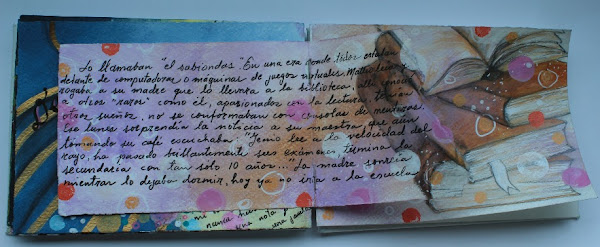 Lo llamaban "el sabiondo". En una era donde todos estaban
delante de computadoras o máquinas de juegos virtuales, Mateo leía y
rogaba a su madre que lo llevara a la biblioteca, allí conoció
a otros "raros" como él, apasionados con la lectura, tenían
otros sueños, no se conformaban con consolas de mentiras.
Ese lunes sorprendía la noticia a su maestra que aún
tomando su café escuchaba: "Genio lee a la velocidad del
rayo, ha pasado brillantemente sus exámenes, termina la
secundaria con tan solo 10 años..." La madre sonreía
mientras lo dejaba dormir, hoy ya no iría a la escuela
mi
nunca
una nota